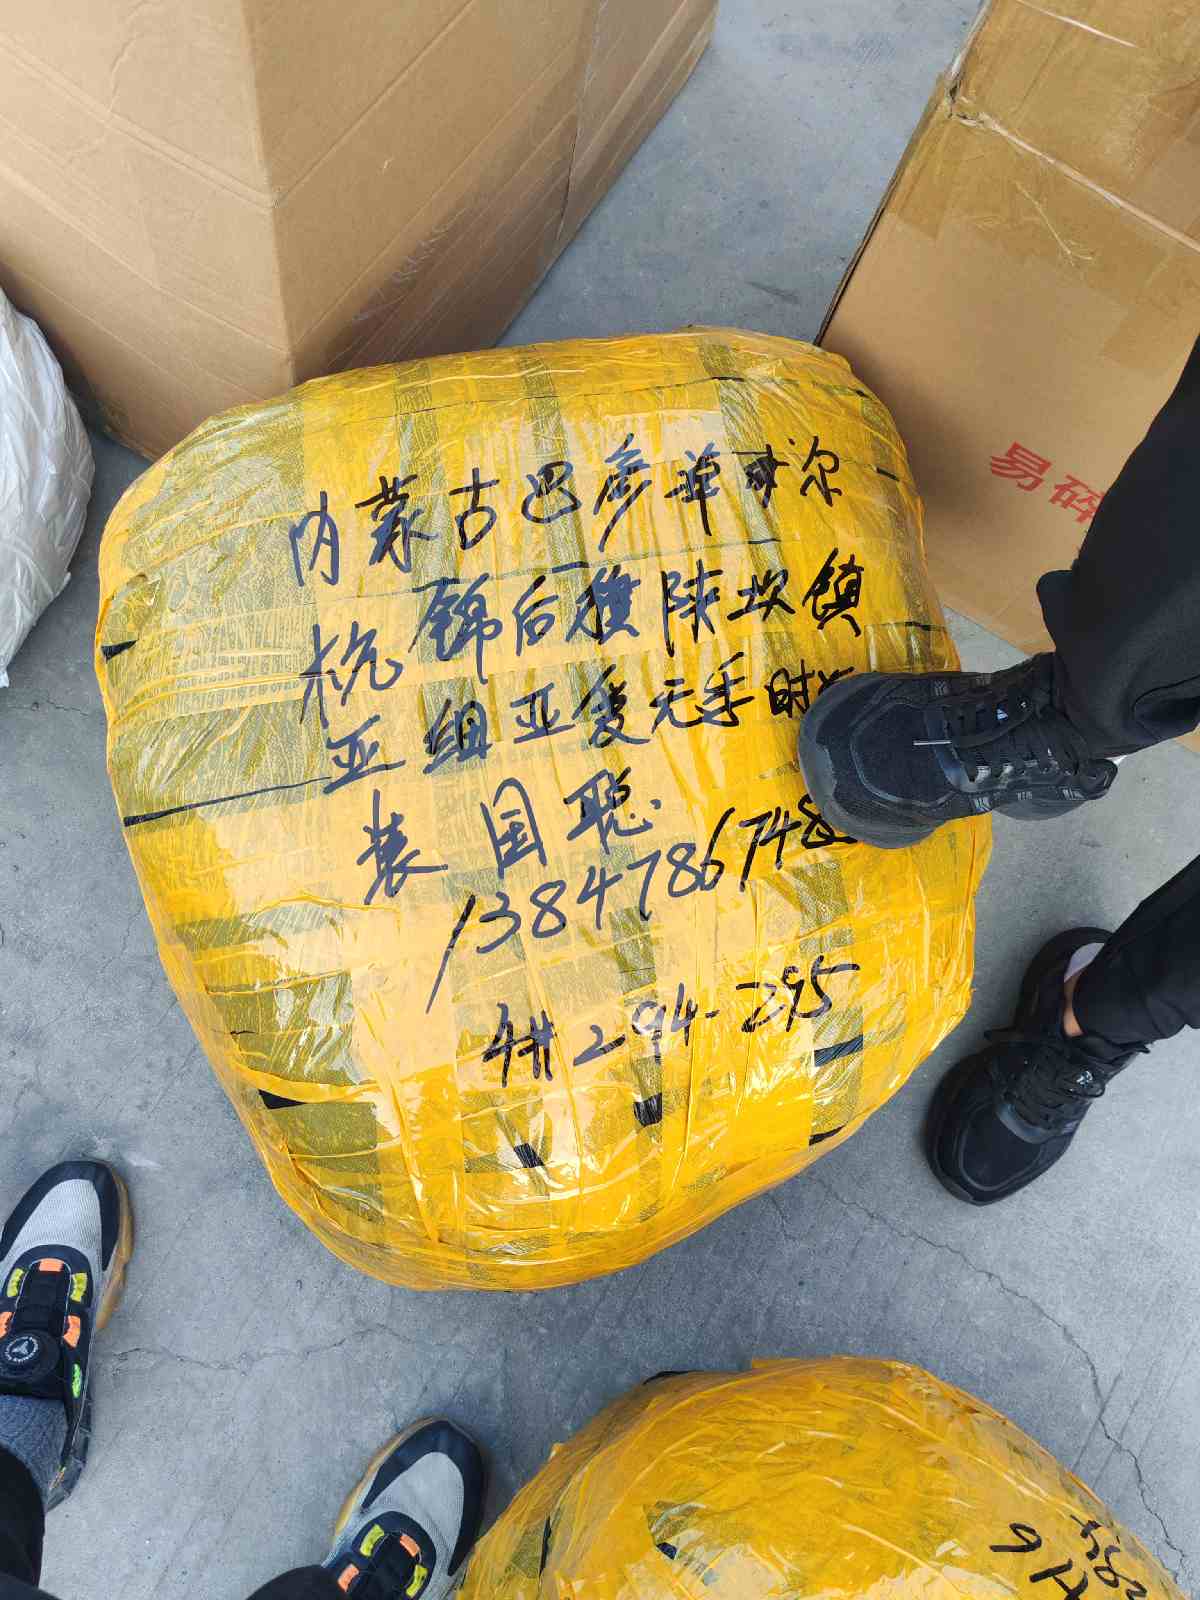 内蒙古巴彦淖尔
杭锦后旗陕坝镇
亚细亚隻元手时
装国聪
1384786748
4# 294-295
易碎